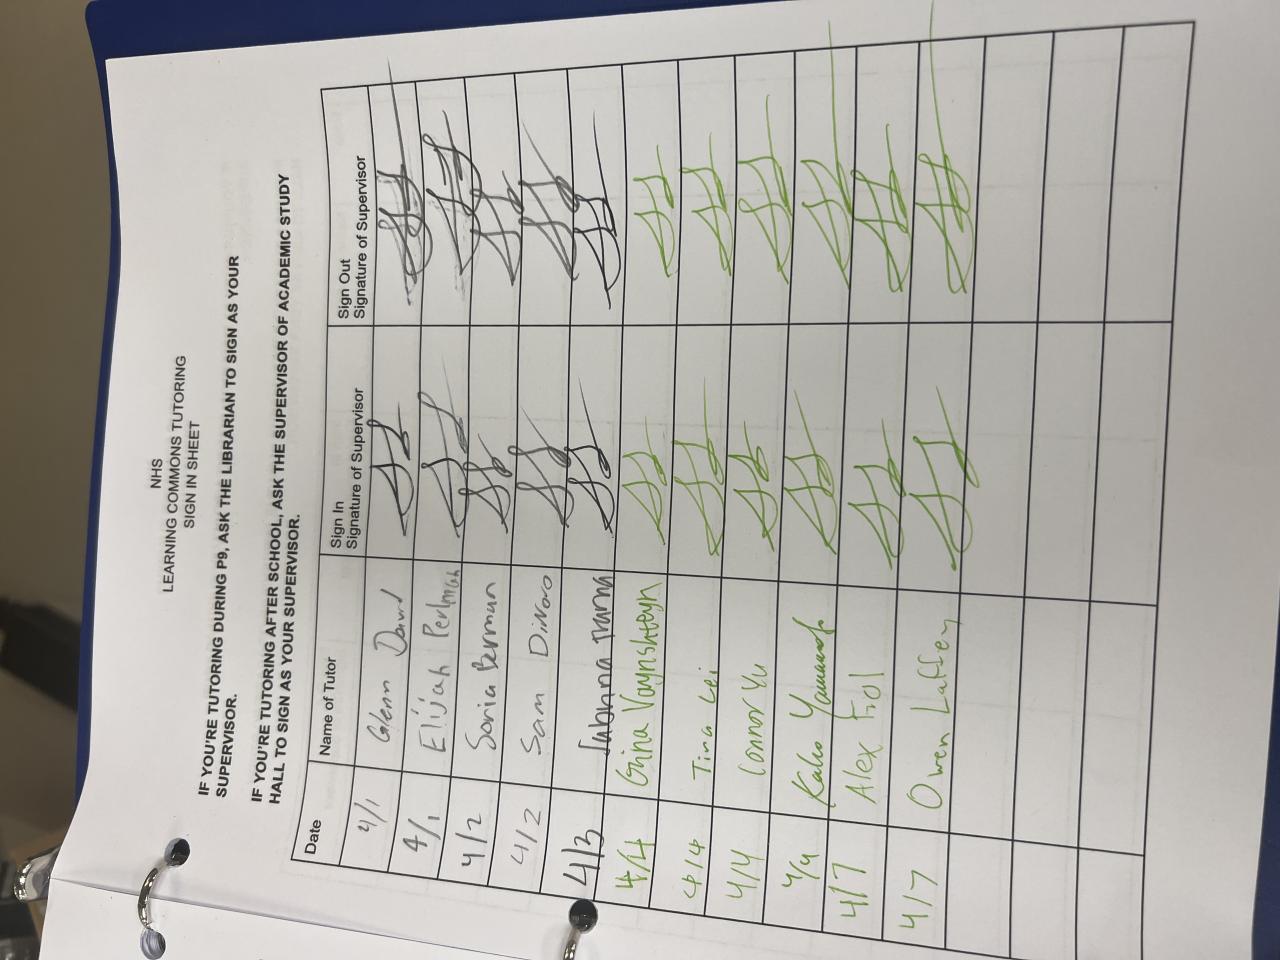 NHS
LEARNING COMMONS TUTORING
SIGN IN SHEET
IF YOU'RE TUTORING DURING P9, ASK THE LIBRARIAN TO SIGN AS YOUR
SUPERVISOR.
IF YOU'RE TUTORING AFTER SCHOOL, ASK THE SUPERVISOR OF ACADEMIC STUDY
HALL TO SIGN AS YOUR SUPERVISOR.
Date Name of Tutor Sign In Signature of Supervisor Sign Out Signature of Supervisor
4/1 Glenn
4/1 Elijah Perlman
4/2 Sonia Berman
4/2 Sam DiNoro
4/3 Sabrina
4/4 Gina Vaynshteyn
4/4 Tina Lei
4/4 Connor Yu
4/4 Kaho
4/7 Alex Frol
4/7 Owen Laffey